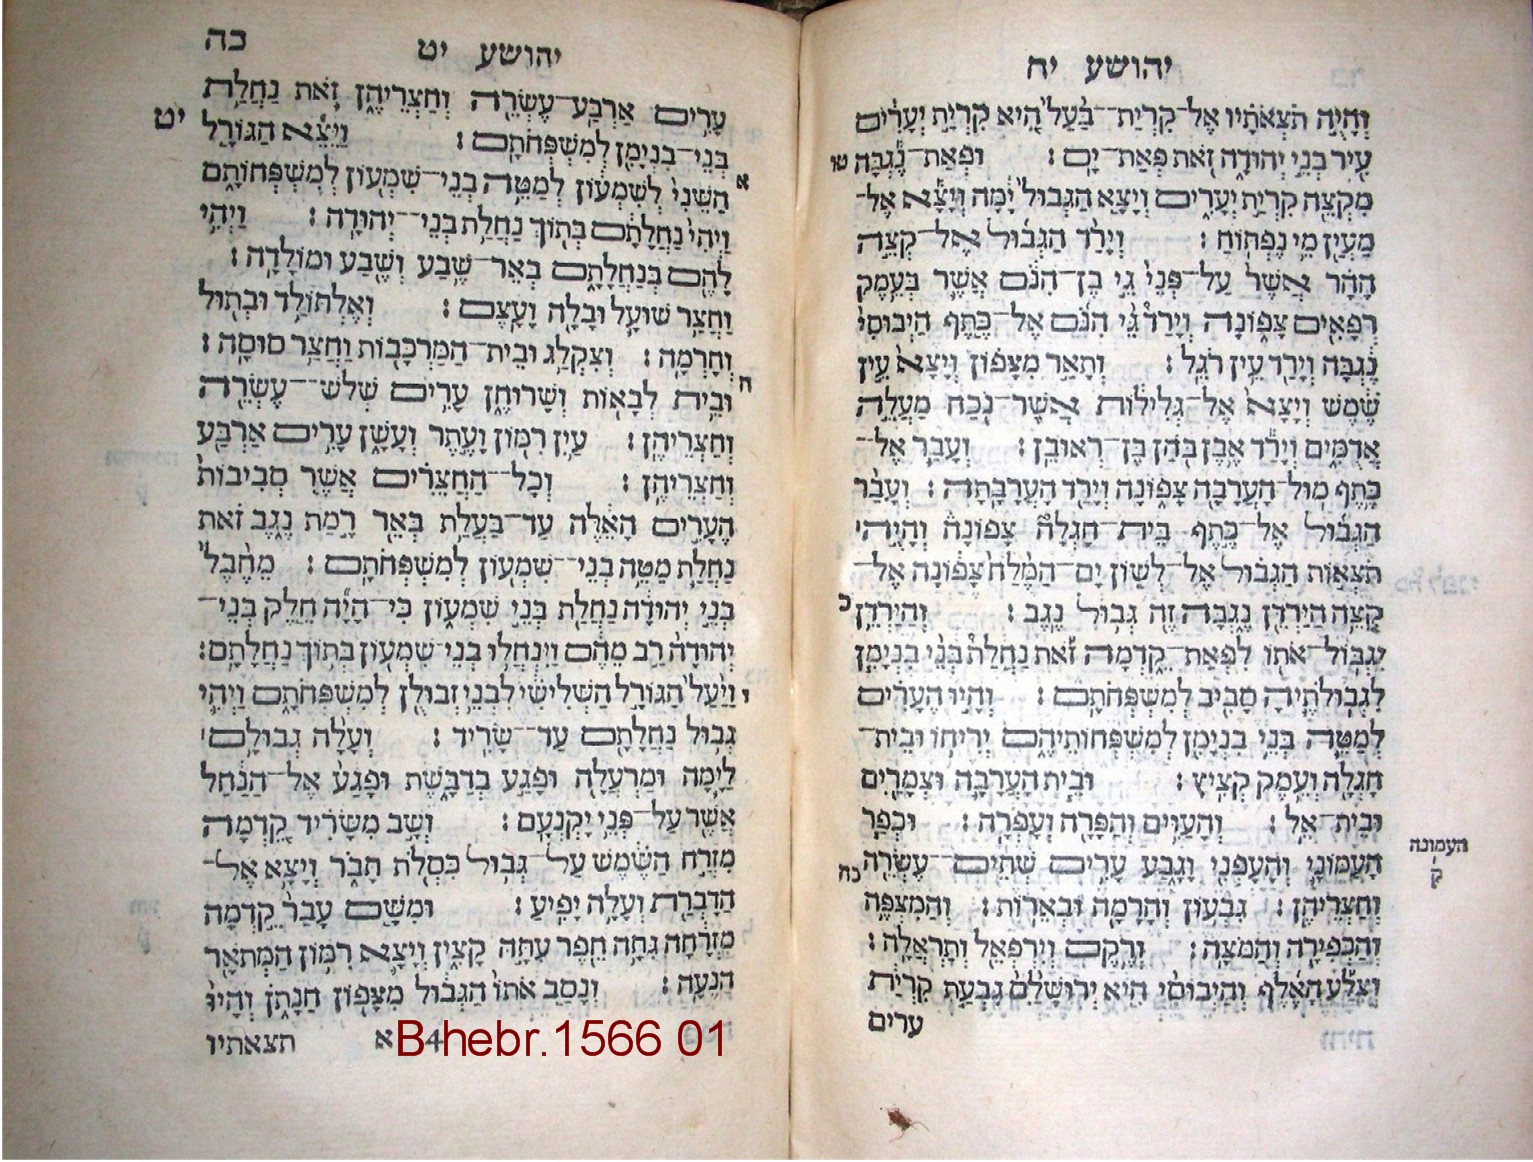 יהושע יח
והיה תצאתיו אל־קרית־בעל היא קרית יערים
עיר בני יהודה זאת פאת־ים׃ ופאת־נגבה טו
מקצה קרית יערים ויצא הגבול ימה ויצא אל־
מעין מי נפתוח׃ וירד הגבול אל־קצה
ההר אשר על־פני גי בן־הנם אשר בעמק
רפאים צפונה וירד גי הנם אל־כתף היבוסי
נגבה וירד עין רגל׃ ותאר מצפון ויצא עין
שמש ויצא אל־גלילות אשר־נכח מעלה
אדמים וירד אבן בהן בן־ראובן׃ ועבר אל־
כתף מול־הערבה צפונה וירד הערבתה׃ ועבר
הגבול אל־כתף בית־חגלה צפונה והיה׀
תצאות הגבול אל־לשון ים־המלח צפונה אל־
קצה הירדן נגבה זה גבול נגב׃ והירדן כ
יגבול־אתו לפאת־קדמה זאת נחלת בני בנימן
לגבולתיה סביב למשפחתם׃ והיו הערים
למטה בני בנימן למשפחותיהם יריחו ובית־
חגלה ועמק קציץ׃ ובית הערבה וצמרים
ובית־אל׃ והעוים והפרה ועפרה׃ וכפר
העמוני והעפני וגבע ערים שתים־עשרה כח
העמונה
ק
וחצריהן׃ גבעון והרמה ובארות׃ והמצפה
והכפירה והמצה׃ ורקם וירפאל ותראלה׃
וצלע האלף והיבוסי היא ירושלם גבעת קרית
ערים
יהושע יט כה
ערים ארבע־עשרה וחצריהן זאת נחלת
בני־בנימן למשפחתם׃ ויצא הגורל יט
א השני לשמעון למטה בני־שמעון למשפחותם
ויהי נחלתם בתוך נחלת בני־יהודה׃ ויהי
להם בנחלתם באר־שבע ושבע ומולדה׃
וחצר שועל ובלה ועצם׃ ואלתולד ובתול
וחרמה׃ וצקלג ובית־המרכבות וחצר סוסה׃
ח ובית לבאות ושרוחן ערים שלש־עשרה
וחצריהן׃ עין רמון ועתר ועשן ערים ארבע
וחצריהן׃ וכל־החצרים אשר סביבות
הערים האלה עד־בעלת באר ראמת נגב זאת
נחלת מטה בני־שמעון למשפחתם׃ מחבל
בני יהודה נחלת בני שמעון כי־היה חלק בני־
יהודה רב מהם וינחלו בני־שמעון בתוך נחלתם׃
י ויעל הגורל השלישי לבני זבולן למשפחתם ויהי
גבול נחלתם עד־שריד׃ ועלה גבולם׀
לימה ומרעלה ופגע בדבשת ופגע אל־הנחל
אשר על־פני יקנעם׃ ושב משריד קדמה
מזרח השמש על־גבול כסלת תבר ויצא אל־
הדברת ועלה יפיע׃ ומשם עבר קדמה
מזרחה גתה חפר עתה קצין ויצא רמון המתאר
הנעה׃ ונסב אתו הגבול מצפון חנתן והיו
תצאתיו 4 א
B hebr.1566 01